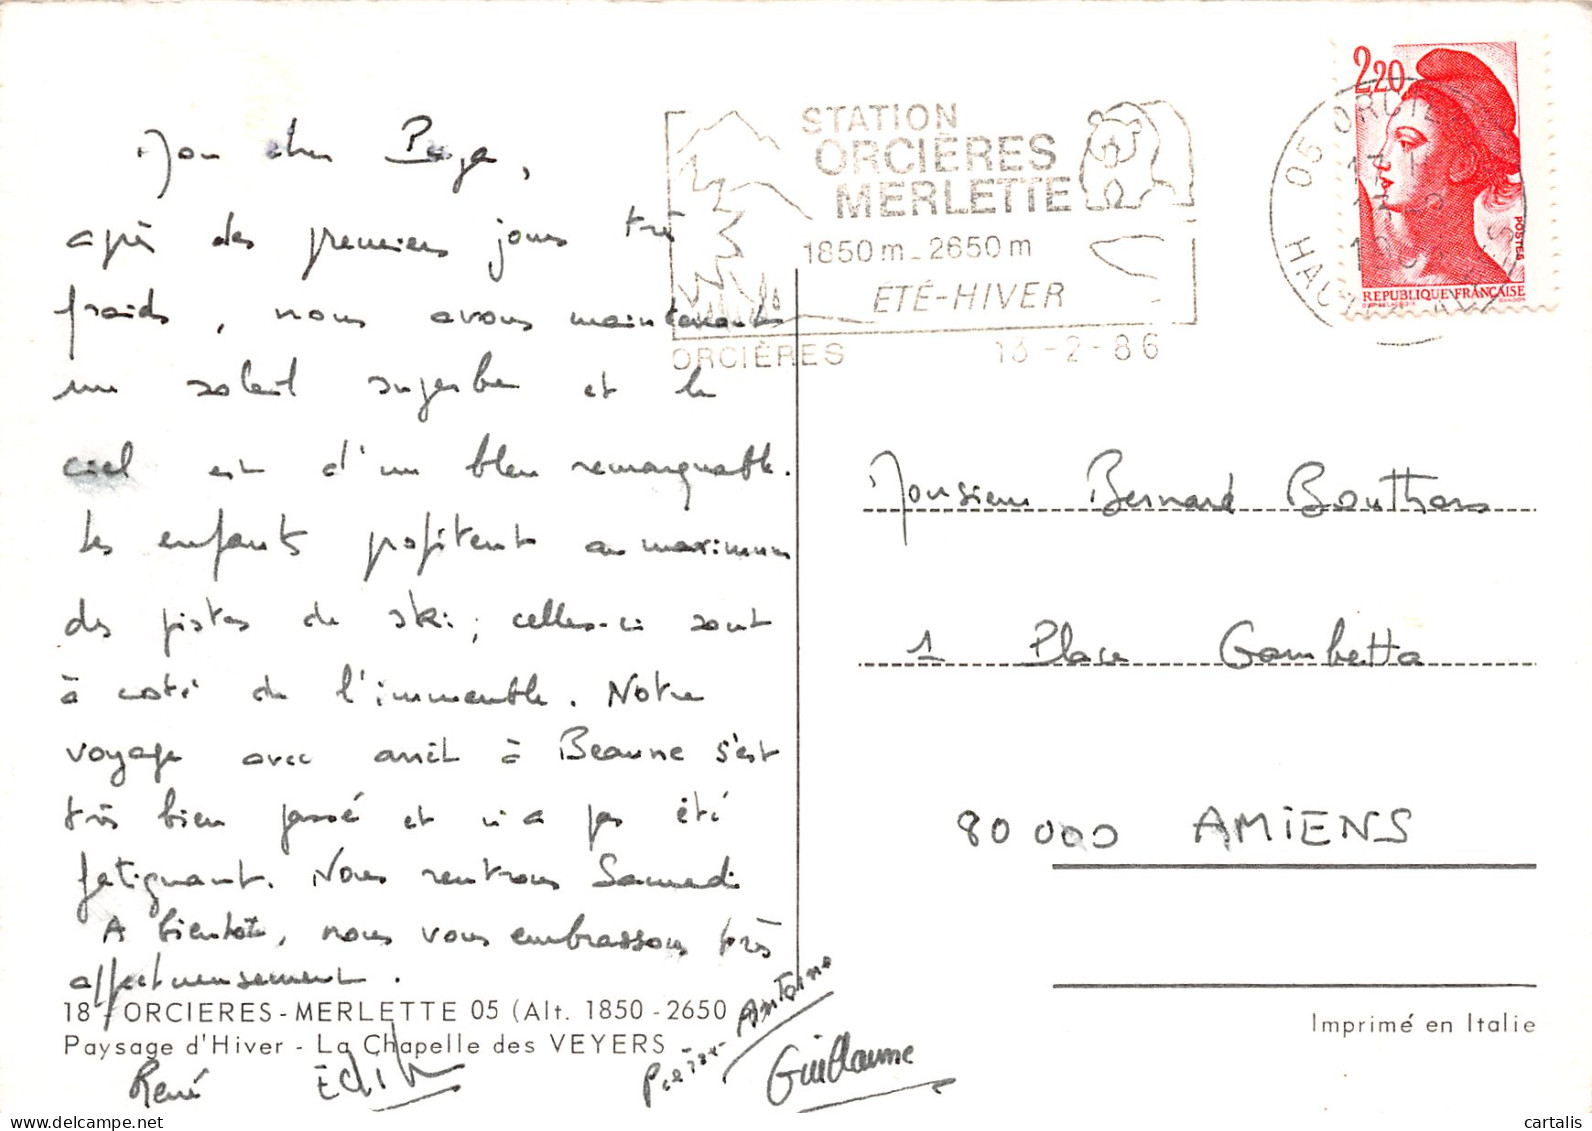 Mon cher Papa,
après des premiers jours très
froids, nous avons maintenant
un soleil superbe et le
ciel est d'un bleu remarquable.
Les enfants profitent au maximum
des pistes de ski; celles-ci sont
à côté de l'immeuble. Notre
voyage avec arrêt à Beaune s'est
très bien passé et n'a pas été
fatiguant. Nous rentrons Samedi
A bientôt, nous vous embrassons très
affectueusement.
René Edith Pierre-Antoine
Guillaume
18 - ORCIERES - MERLETTE 05 (Alt. 1850 - 2650
Paysage d'Hiver - La Chapelle des VEYERS
STATION
ORCIÈRES
MERLETTE
1850 m - 2650 m
ÉTÉ-HIVER
ORCIÈRES 13-2-86
05 ORCIÈRES
HAUTES ALPES
2,20
POSTES
REPUBLIQUE FRANÇAISE
Monsieur Bernard Bouthors
1 Place Gambetta
80 000 AMIENS
Imprimé en Italie
cartalis